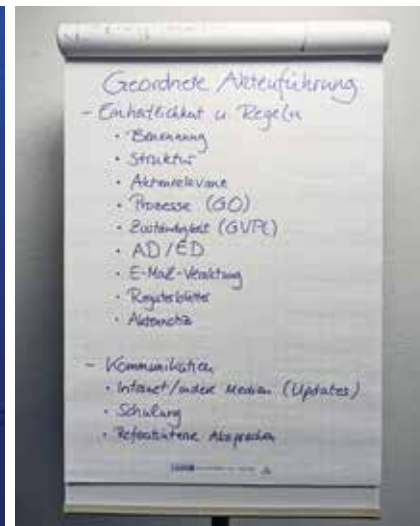 Geordnete Aktenführung
- Einheitlichkeit u Regeln
• Benennung
• Struktur
• Aktenrelevanz
• Prozesse (GO)
• Zuständigkeit (GVPL)
• AD/ED
• E-Mail-Veraktung
• Registerblätter
• Aktennotiz
- Kommunikation
• Intranet/andere Medien (Updates)
• Schulung
• Referatsinterne Absprachen